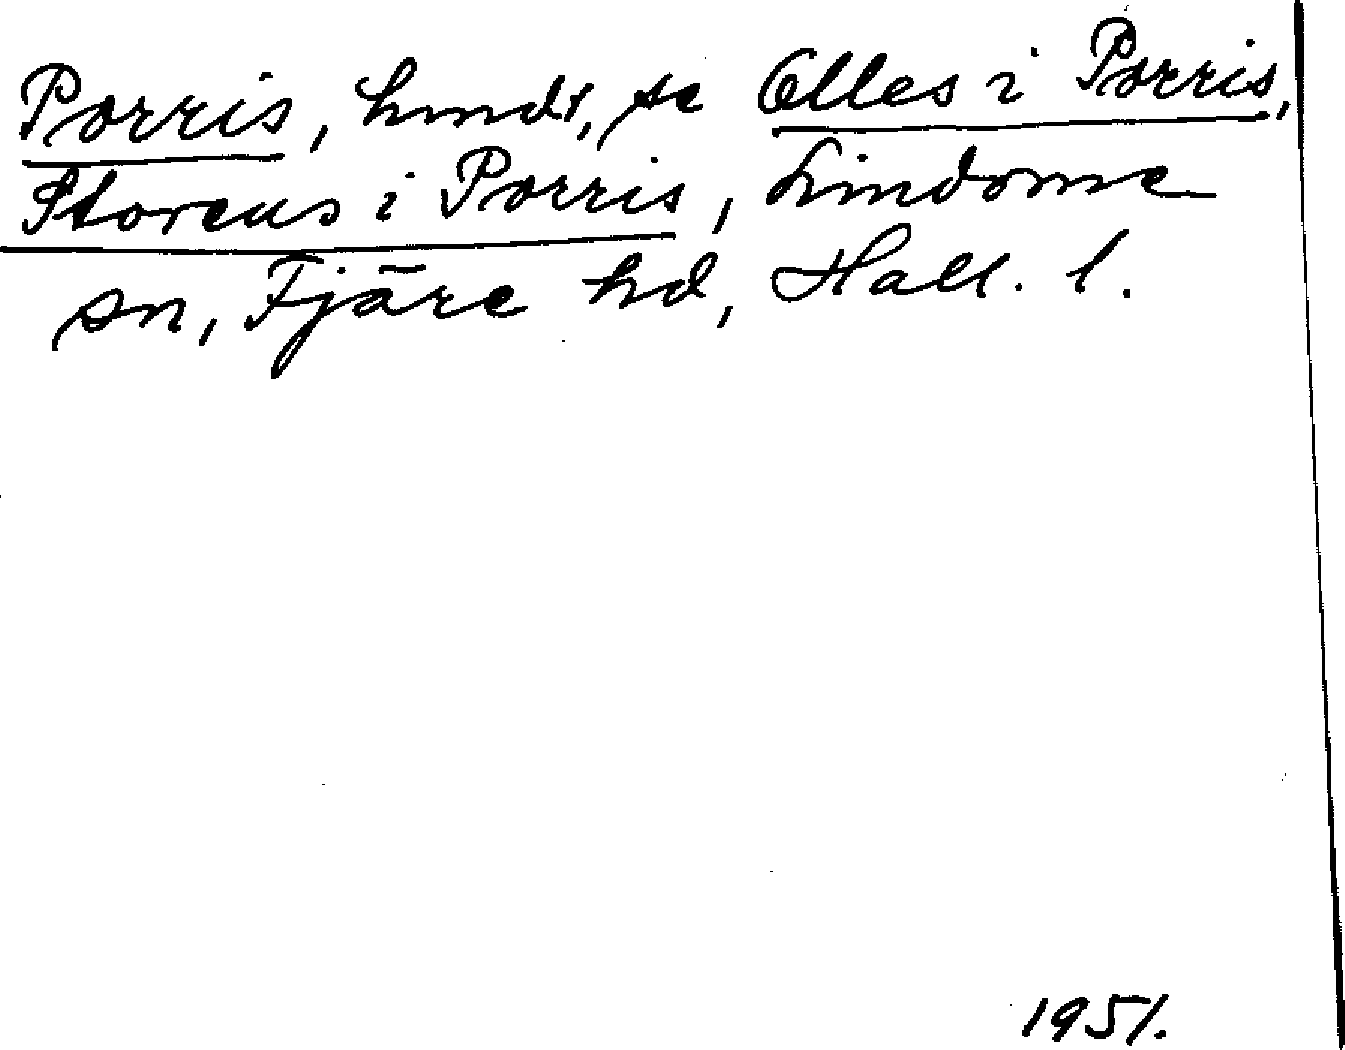 Porris, hmdt, se Olles i Porris,
Storeus i Porris, Lindome
sn, Fjäre hd, Hall. l.
1951.